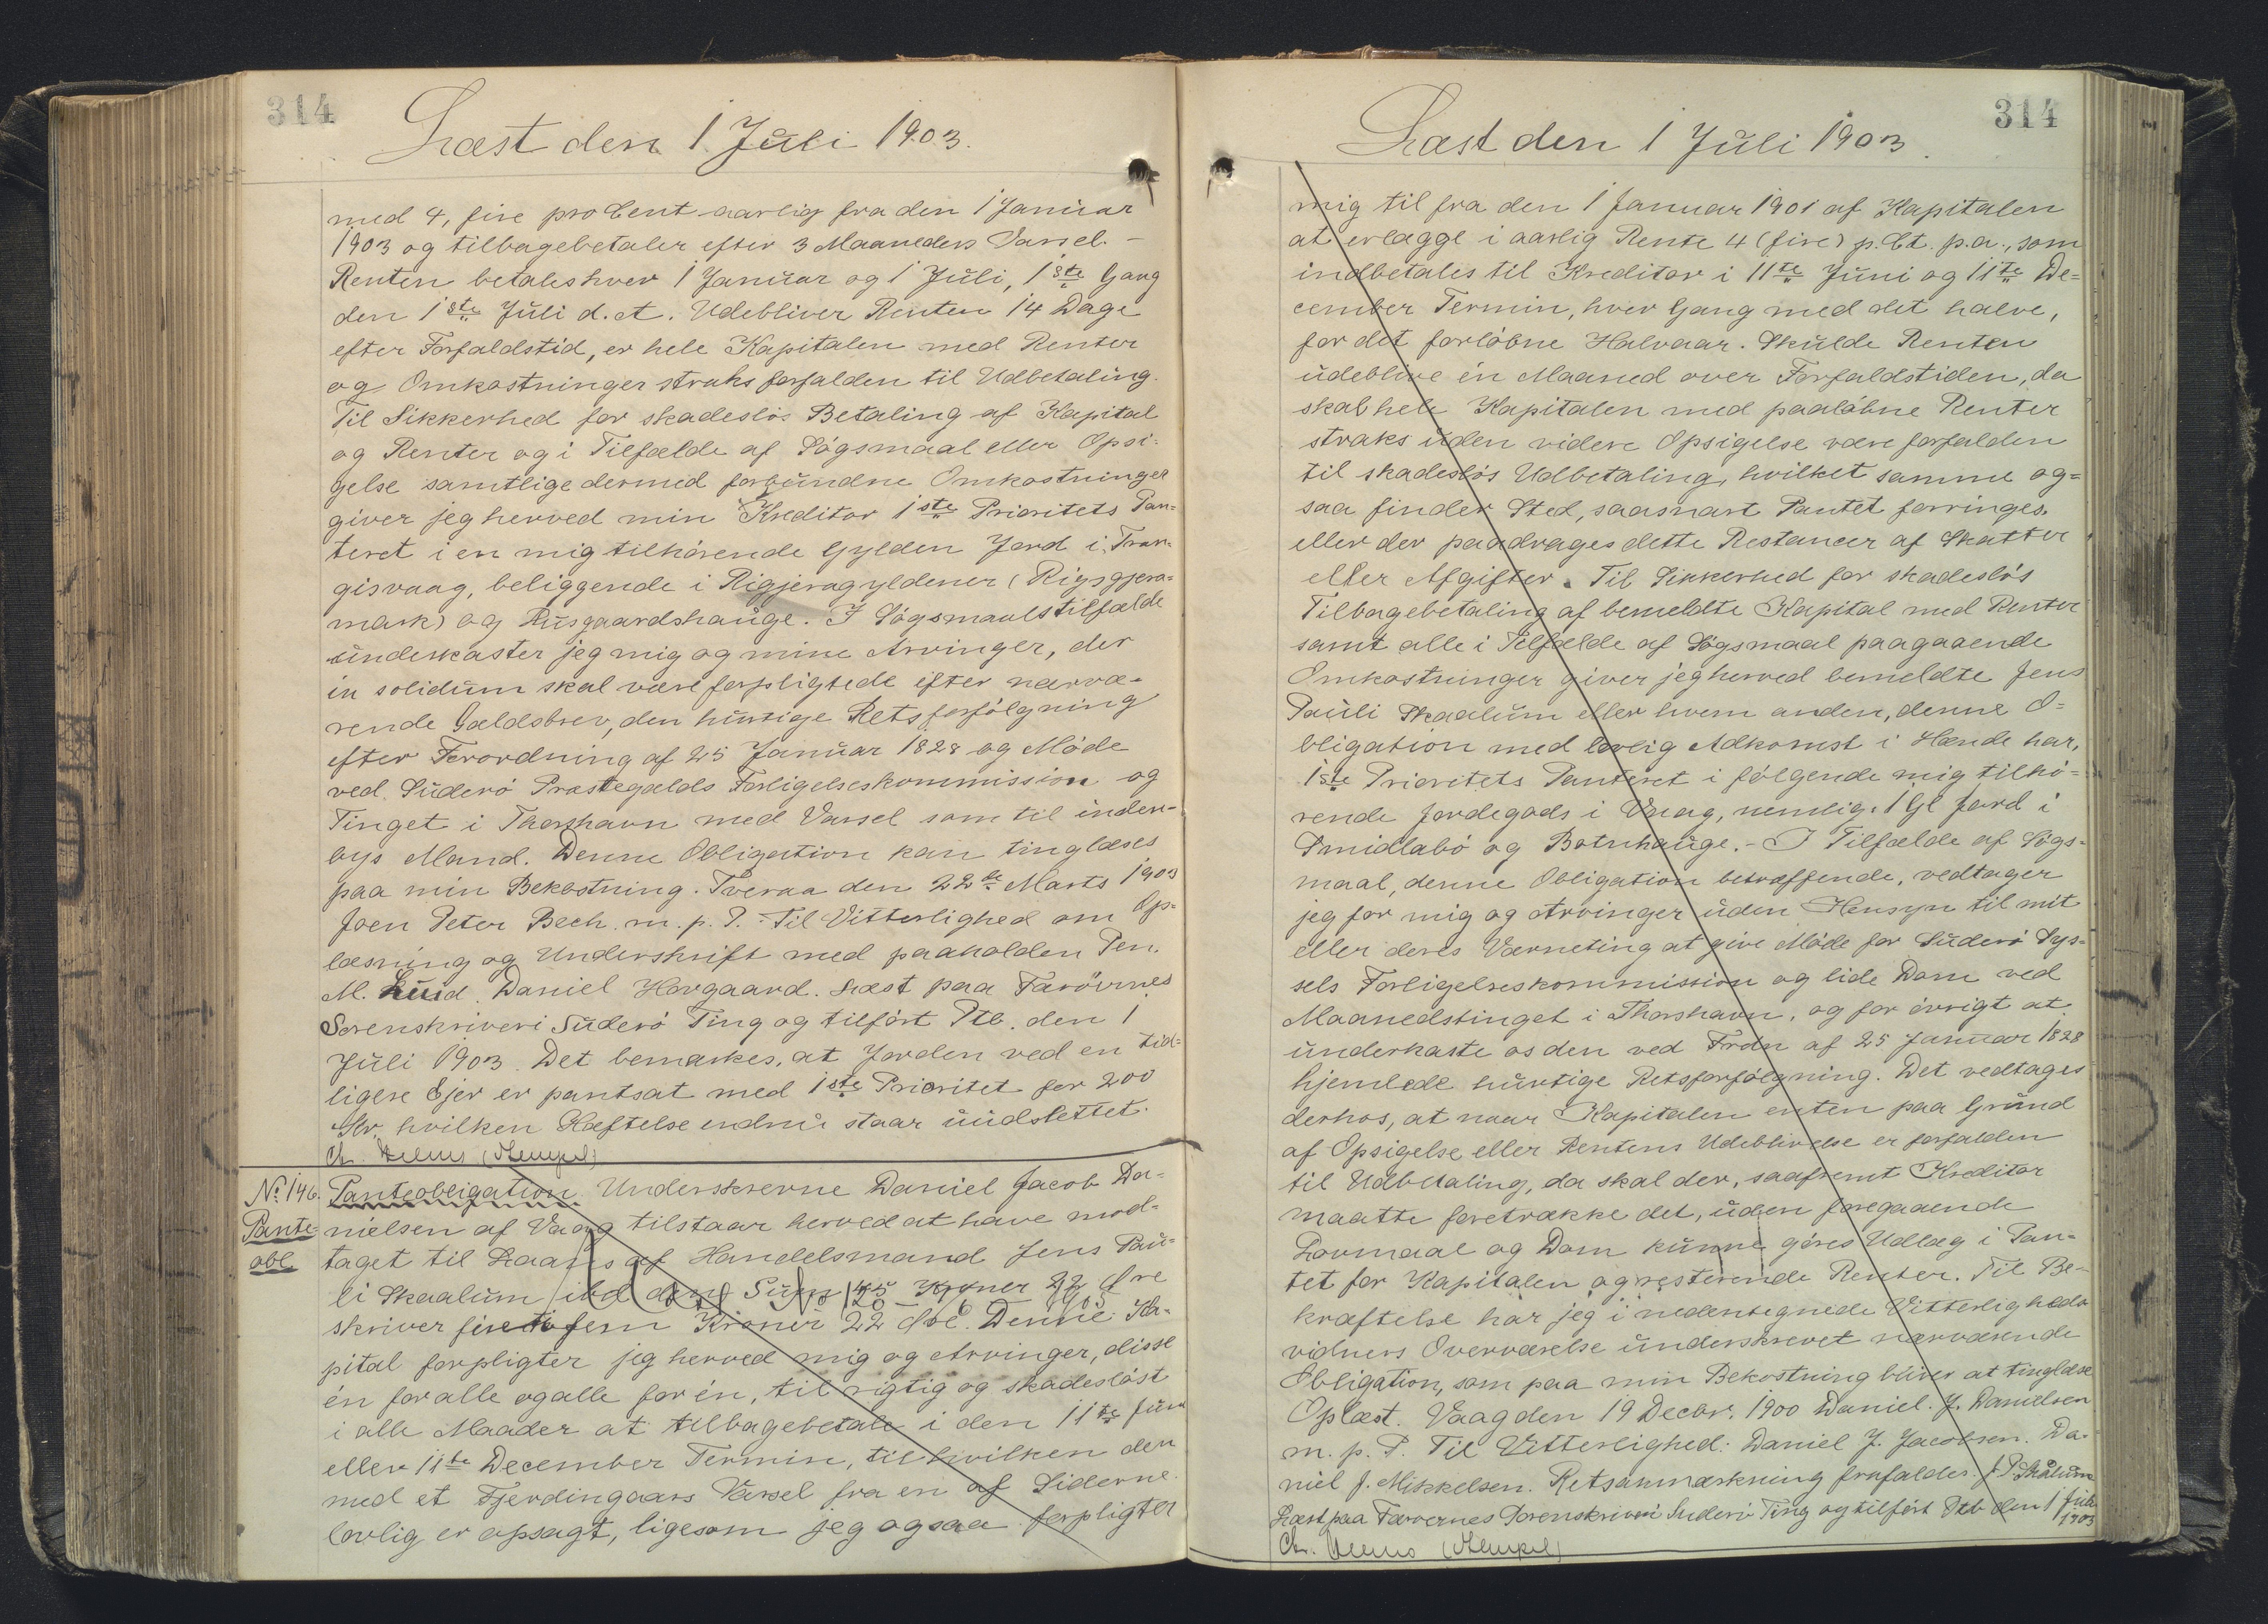 314
Læst den 1 Juli 1903.
med 4, fire pro Cent aarlig fra den 1 Januar
1903 og tilbagebetaler efter 3 Maaneders Varsel. -
Renten betales hver 1 Januar og 1 Juli, 1ste Gang
den 1ste Juli d. A. Udebliver Renten 14 Dage
efter Forfaldstid, er hele Kapitalen med Renter
og Omkostninger straks forfalden til Udbetaling.
Til Sikkerhed for skadeslös Betaling af Kapital
og Renter og i Tilfælde af Sögsmaal eller Opsi-
gelse samtlige dermed forbundne Omkostninger
giver jeg herved min Kreditor 1ste Prioritets Pan-
teret i en mig tilhörende Gylden Jord i Tran-
gisvaag, beliggende i Rigjeragyldener (Rigsgjera-
mark) og Husgaardshauge. I Sögsmaalstilfælde
underkaster jeg mig og mine Arvinger, der
in solidum skal være forpligtede efter nærvæ-
rende Gældsbrev, den hurtige Retsforfölgning
efter Forordning af 25 Januar 1828 og Möde
ved Suderö Præstegælds Forligelseskommission og
Tinget i Thorshavn med Varsel som til inden-
bys Mand. Denne Obligation kan tinglæses
paa min Bekostning. Tveraa den 22de Marts 1903
Joen Peter Bech. m. p. P. Til Vitterlighed om Op-
læsning og Underskrift med paaholden Pen.
M. Lüid. Daniel Horgaard. Læst paa Færöernes
Sorenskriveri Suderö Ting og tilfört Ptb. den 1
Juli 1903. Det bemærkes, at Jorden ved en tid-
ligere Ejer er pantsat med 1ste Prioritet for 200
Kr. hvilken Hæftelse endnu staar uudslettet.
Ch. (Stempel)
No 146. Panteobligation. Underskrevne Daniel Jacob Da-
Pante- nielsen af Vaag tilstaar herved at have mod-
obl. taget til Laans af Handelsmand Jens Pau-
li Skaalum ibd den Sum 45 Kroner 22 Øre
skriver fireti fem Kroner 22 Øre. Denne Ka-
pital forpligter jeg herved mig og Arvinger, disse
én for alle og alle for én, til rigtig og skadeslöst
i alle Maader at tilbagebetale i den 11te Juni
eller 11te December Termin, til hvilken den
med et Fjerdingaars Varsel fra en af Siderne
lovlig er opsagt, ligesom jeg ogsaa forpligter
314
Læst den 1 Juli 1903.
mig til fra den 1 Januar 1901 af Kapitalen
at erlægge i aarlig Rente 4 (fire) p. Ct. p. a., som
indbetales til Kreditor i 11te Juni og 11te De-
cember Termin, hver Gang med det halve,
for det forlöbne Halvaar. Skulde Renten
udeblive én Maaned over Forfaldstiden, da
skal hele Kapitalen med paalöbne Renter
straks uden videre Opsigelse være forfalden
til skadeslös Udbetaling, hvilket samme og-
saa finder Sted, saasnart Pantet forringes,
eller der paadrages dette Restancer af Skatter
eller Afgifter. Til Sikkerhed for skadeslös
Tilbagebetaling af bemeldte Kapital med Renter
samt alle i Tilfælde af Sögsmaal paagaaende
Omkostninger giver jeg herved bemeldte Jens
Pauli Skaalum eller hvem anden, denne O-
bligation med lovlig Adkomst i Hænde har,
1ste Prioritets Panteret i fölgende mig tilhö-
rende Jordegods i Vaag, nemlig. 1 Gl Jord i
Smidlabö og Botnhauge. - I Tilfælde af Sögs-
maal, denne Obligation betræffende, vedtager
jeg for mig og Arvinger uden Hensyn til mit
eller deres Værneting at give Möde for Suderö Sys-
sels Forligelseskommission og lide Dom ved
Maanedstinget i Thorshavn, og for övrigt at
underkaste os den ved Frdn af 25 Januar 1828
hjemlede hurtige Retsforfölgning. Det vedtages
derhos, at naar Kapitalen enten paa Grund
af Opsigelse eller Rentens Udeblivelse er forfalden
til Udbetaling, da skal der, saafremt Kreditor
maatte foretrække det, uden foregaaende
Lovmaal og Dom kunne göres Udlæg i Pan-
tet for Kapitalen og resterende Renter. Til Be-
kræftelse har jeg i nedentegnede Vitterligheds
vidners Overværelse underskrevet nærværende
Obligation, som paa min Bekostning bliver at tinglæse
Oplæst. Vaag den 19 Decbr. 1900 Daniel. J. Danielsen
m. p. P. Til Vitterlighed: Daniel J. Jacobsen. Da-
niel J. Mikkelsen. Retsanmærkning frafaldes. J. P. Skålum
Læst paa Færøernes Sorenskriveri Suderö Ting og tilfört Ptb den 1 Juli
1903
Ch. (Stempel)